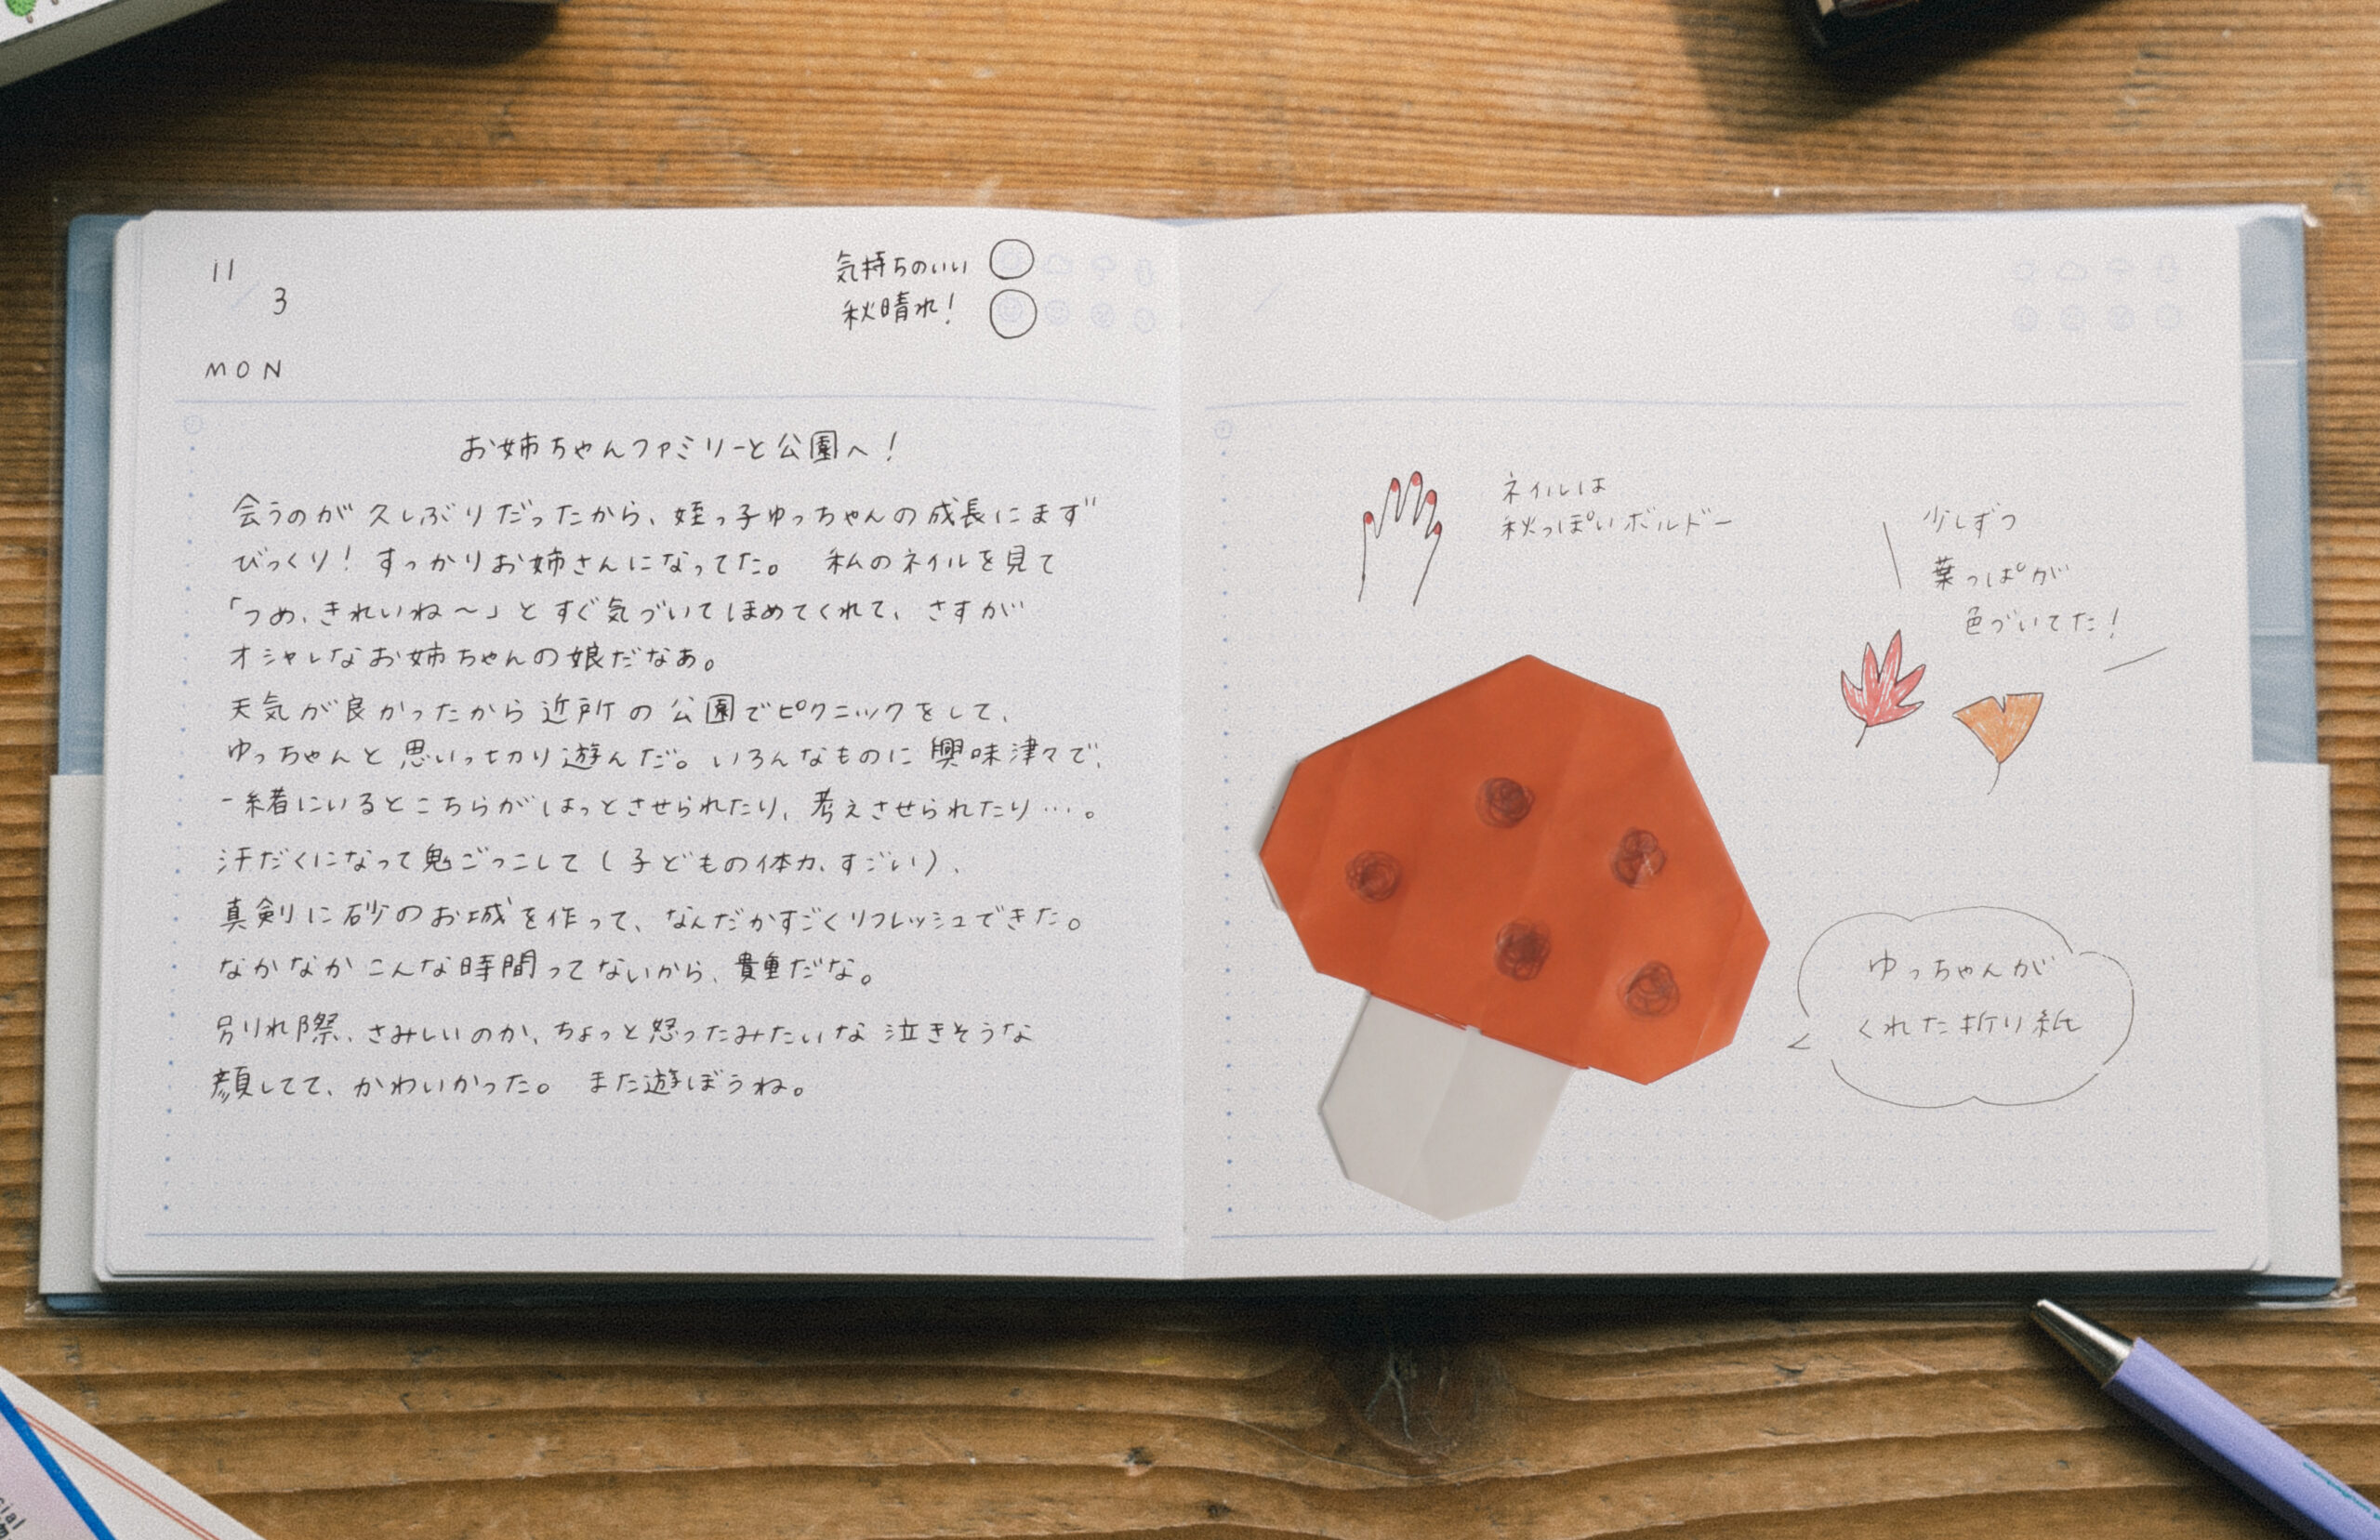 11
3
MON
気持ちのいい
秋晴れ!
お姉ちゃんファミリーと公園へ!
会うのが久しぶりだったから、姪っ子ゆっちゃんの成長にまず
びっくり! すっかりお姉さんになってた。 私のネイルを見て
「つめ、きれいね〜」とすぐ気づいてほめてくれて、さすが
オシャレなお姉ちゃんの娘だなぁ。
天気が良かったから近所の公園でピクニックをして、
ゆっちゃんと思いっきり遊んだ。いろんなものに興味津々で、
一緒にいるとこちらがはっとさせられたり、考えさせられたり…。
汗だくになって鬼ごっこして(子どもの体力、すごい)、
真剣に砂のお城を作って、なんだかすごくリフレッシュできた。
なかなかこんな時間ってないから、貴重だな。
別れ際、さみしいのか、ちょっと怒ったみたいな泣きそうな
顔してて、かわいかった。 また遊ぼうね。
ネイルは
秋っぽいボルドー
少しずつ
葉っぱが
色づいてた!
ゆっちゃんが
くれた折り紙